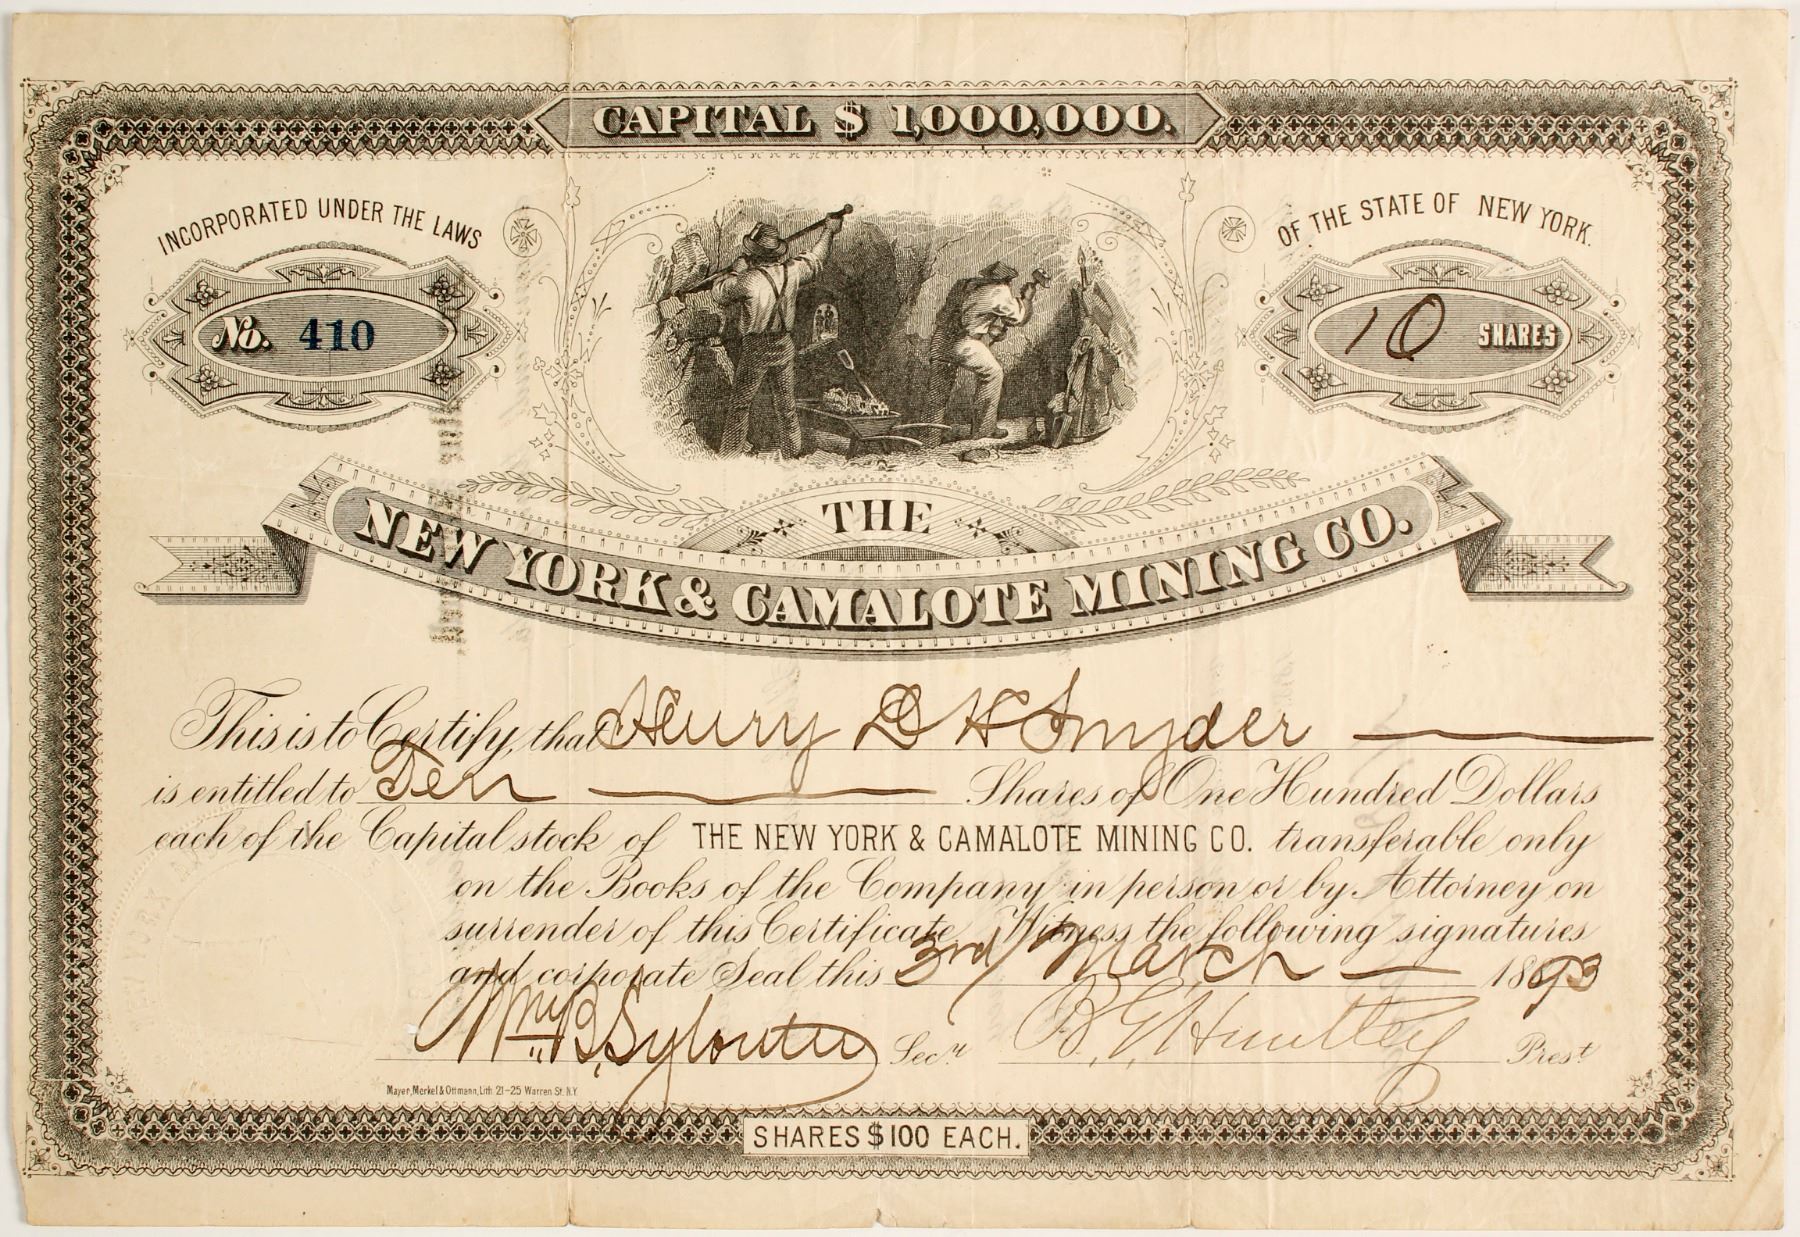 CAPITAL $ 1,000,000.
INCORPORATED UNDER THE LAWS
OF THE STATE OF NEW YORK.
No. 410
10 SHARES
THE
NEW YORK & CAMALOTE MINING CO.
This is to Certify, that Henry D H Snyder
is entitled to Ten Shares of One Hundred Dollars
each of the Capital stock of THE NEW YORK & CAMALOTE MINING CO. transferable only
on the Books of the Company in person or by Attorney on
surrender of this Certificate Witness the following signatures
and corporate Seal this 3rd March 1893
Wm B. Sec.y B. G. Huntley Prest
Mayer, Merkel & Ottmann, Lith. 21-25 Warren St. N.Y.
SHARES $100 EACH.